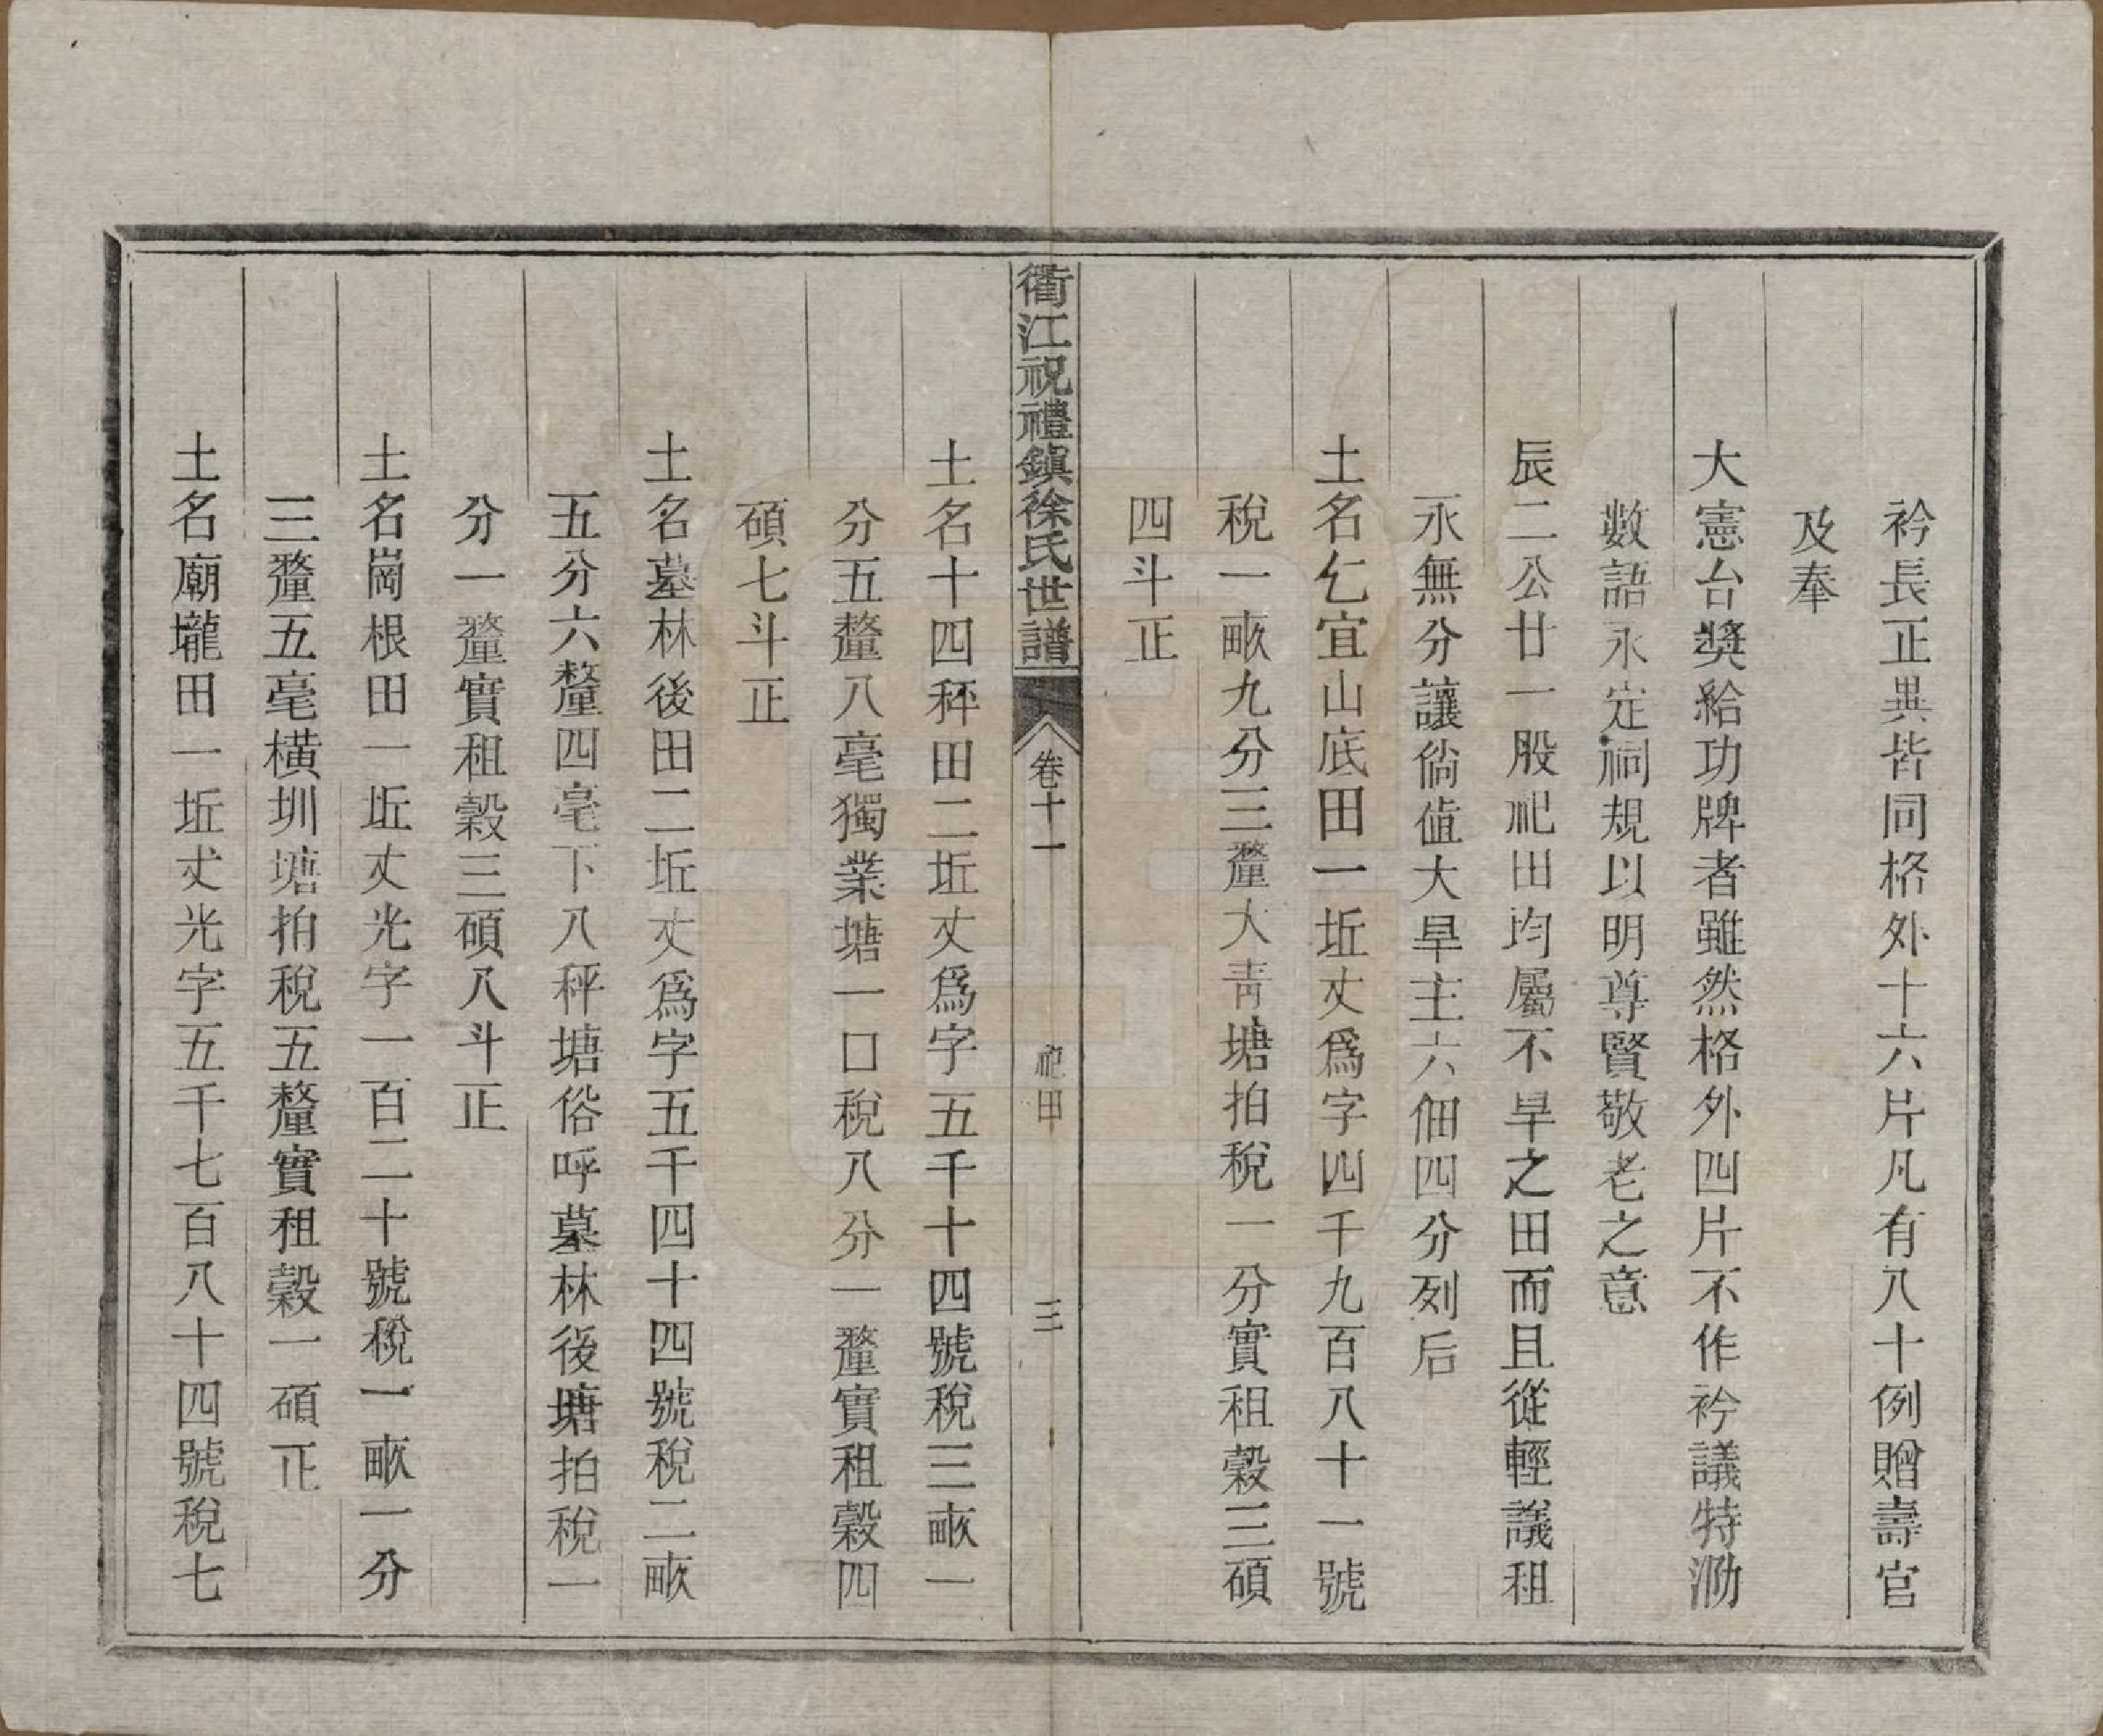 衿長正異皆同格外十六片凡有八十例贈壽官
及奉
大憲台獎給功牌者雖然格外四片不作衿議特泐
數語永定祠規以明尊賢敬老之意
辰二公廿一股祀田均屬不旱之田而且從輕議租
永無分讓倘值大旱主六佃四分列后
土名乞宜山底田一坵丈爲字四千九百八十一號
稅一畝九分三釐大靑塘拍稅一分實租穀三碩
四斗正
衢江祝禮鎮徐氏世譜 卷十一 祀田 三
土名十四秤田二坵丈爲字五千十四號稅三畝一
分五釐八毫獨業塘一口稅八分一釐實租穀四
碩七斗正
土名墓林後田二坵丈爲字五千四十四號稅二畝
五分六釐四毫下八秤塘俗呼墓林後塘拍稅一
分一釐實租穀三碩八斗正
土名崗根田一坵丈光字一百二十號稅一畝一分
三釐五毫橫圳塘拍稅五釐實租穀一碩正
土名廟壠田一坵丈光字五千七百八十四號稅七